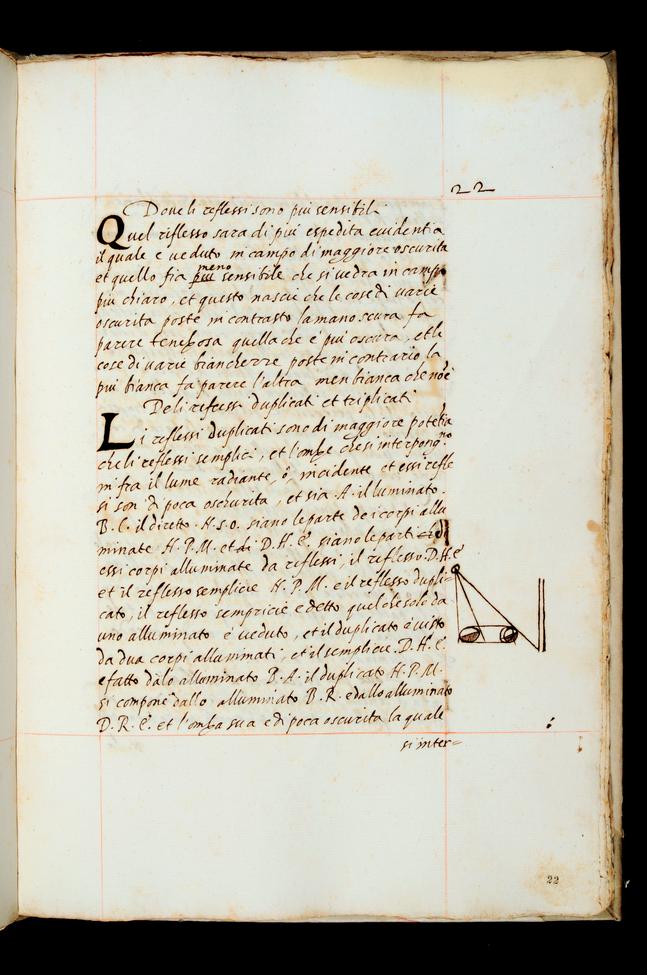 22
Doue li reflessi sono piu sensibili
Quel riflesso sara di piu espedita euidentia
il quale e ueduto in campo di maggiore oscurita
et quello fia piu meno sensibile che si uedra in campo
piu chiaro, et questo nascie che le cose di uarie
oscurita poste in contrasto la mano scura fa
parere tenebrosa quella che e piu oscura, et le
cose di uarie biancherre poste in contrario la
piu bianca fa parere l'altra men bianca che nō è
De li reflessi duplicati et triplicati
Li reflessi duplicati sono di maggiore potētia
che li reflessi semplici, et l'ombre che si interpongono
infra il lume radiante, ò, incidente et essi refle
si son di poca oschurita, et sia .A. il luminato.
B. C. il diretto .H. s.o. siano le parte de i corpi allu
minate .H. P. M. et di D. H. E. siano le parti di
essi corpi alluminate da reflessi, il reflesso .D. H. E.
et il reflesso semplicie H. P. M. e il reflesso dupli=
cato, il reflesso sempricie e detto quel che solo da
uno alluminato e ueduto, et il duplicato è uisto
da dua corpi alluminati, et il semplicie .D. H. E.
e fatto dalo alluminato B. A. il duplicato H. P. M.
si compone dallo alluminato B. R. e dallo alluminato
D. R. E. et l'ombra sua e di poca oscurita la quale
si inter=
22